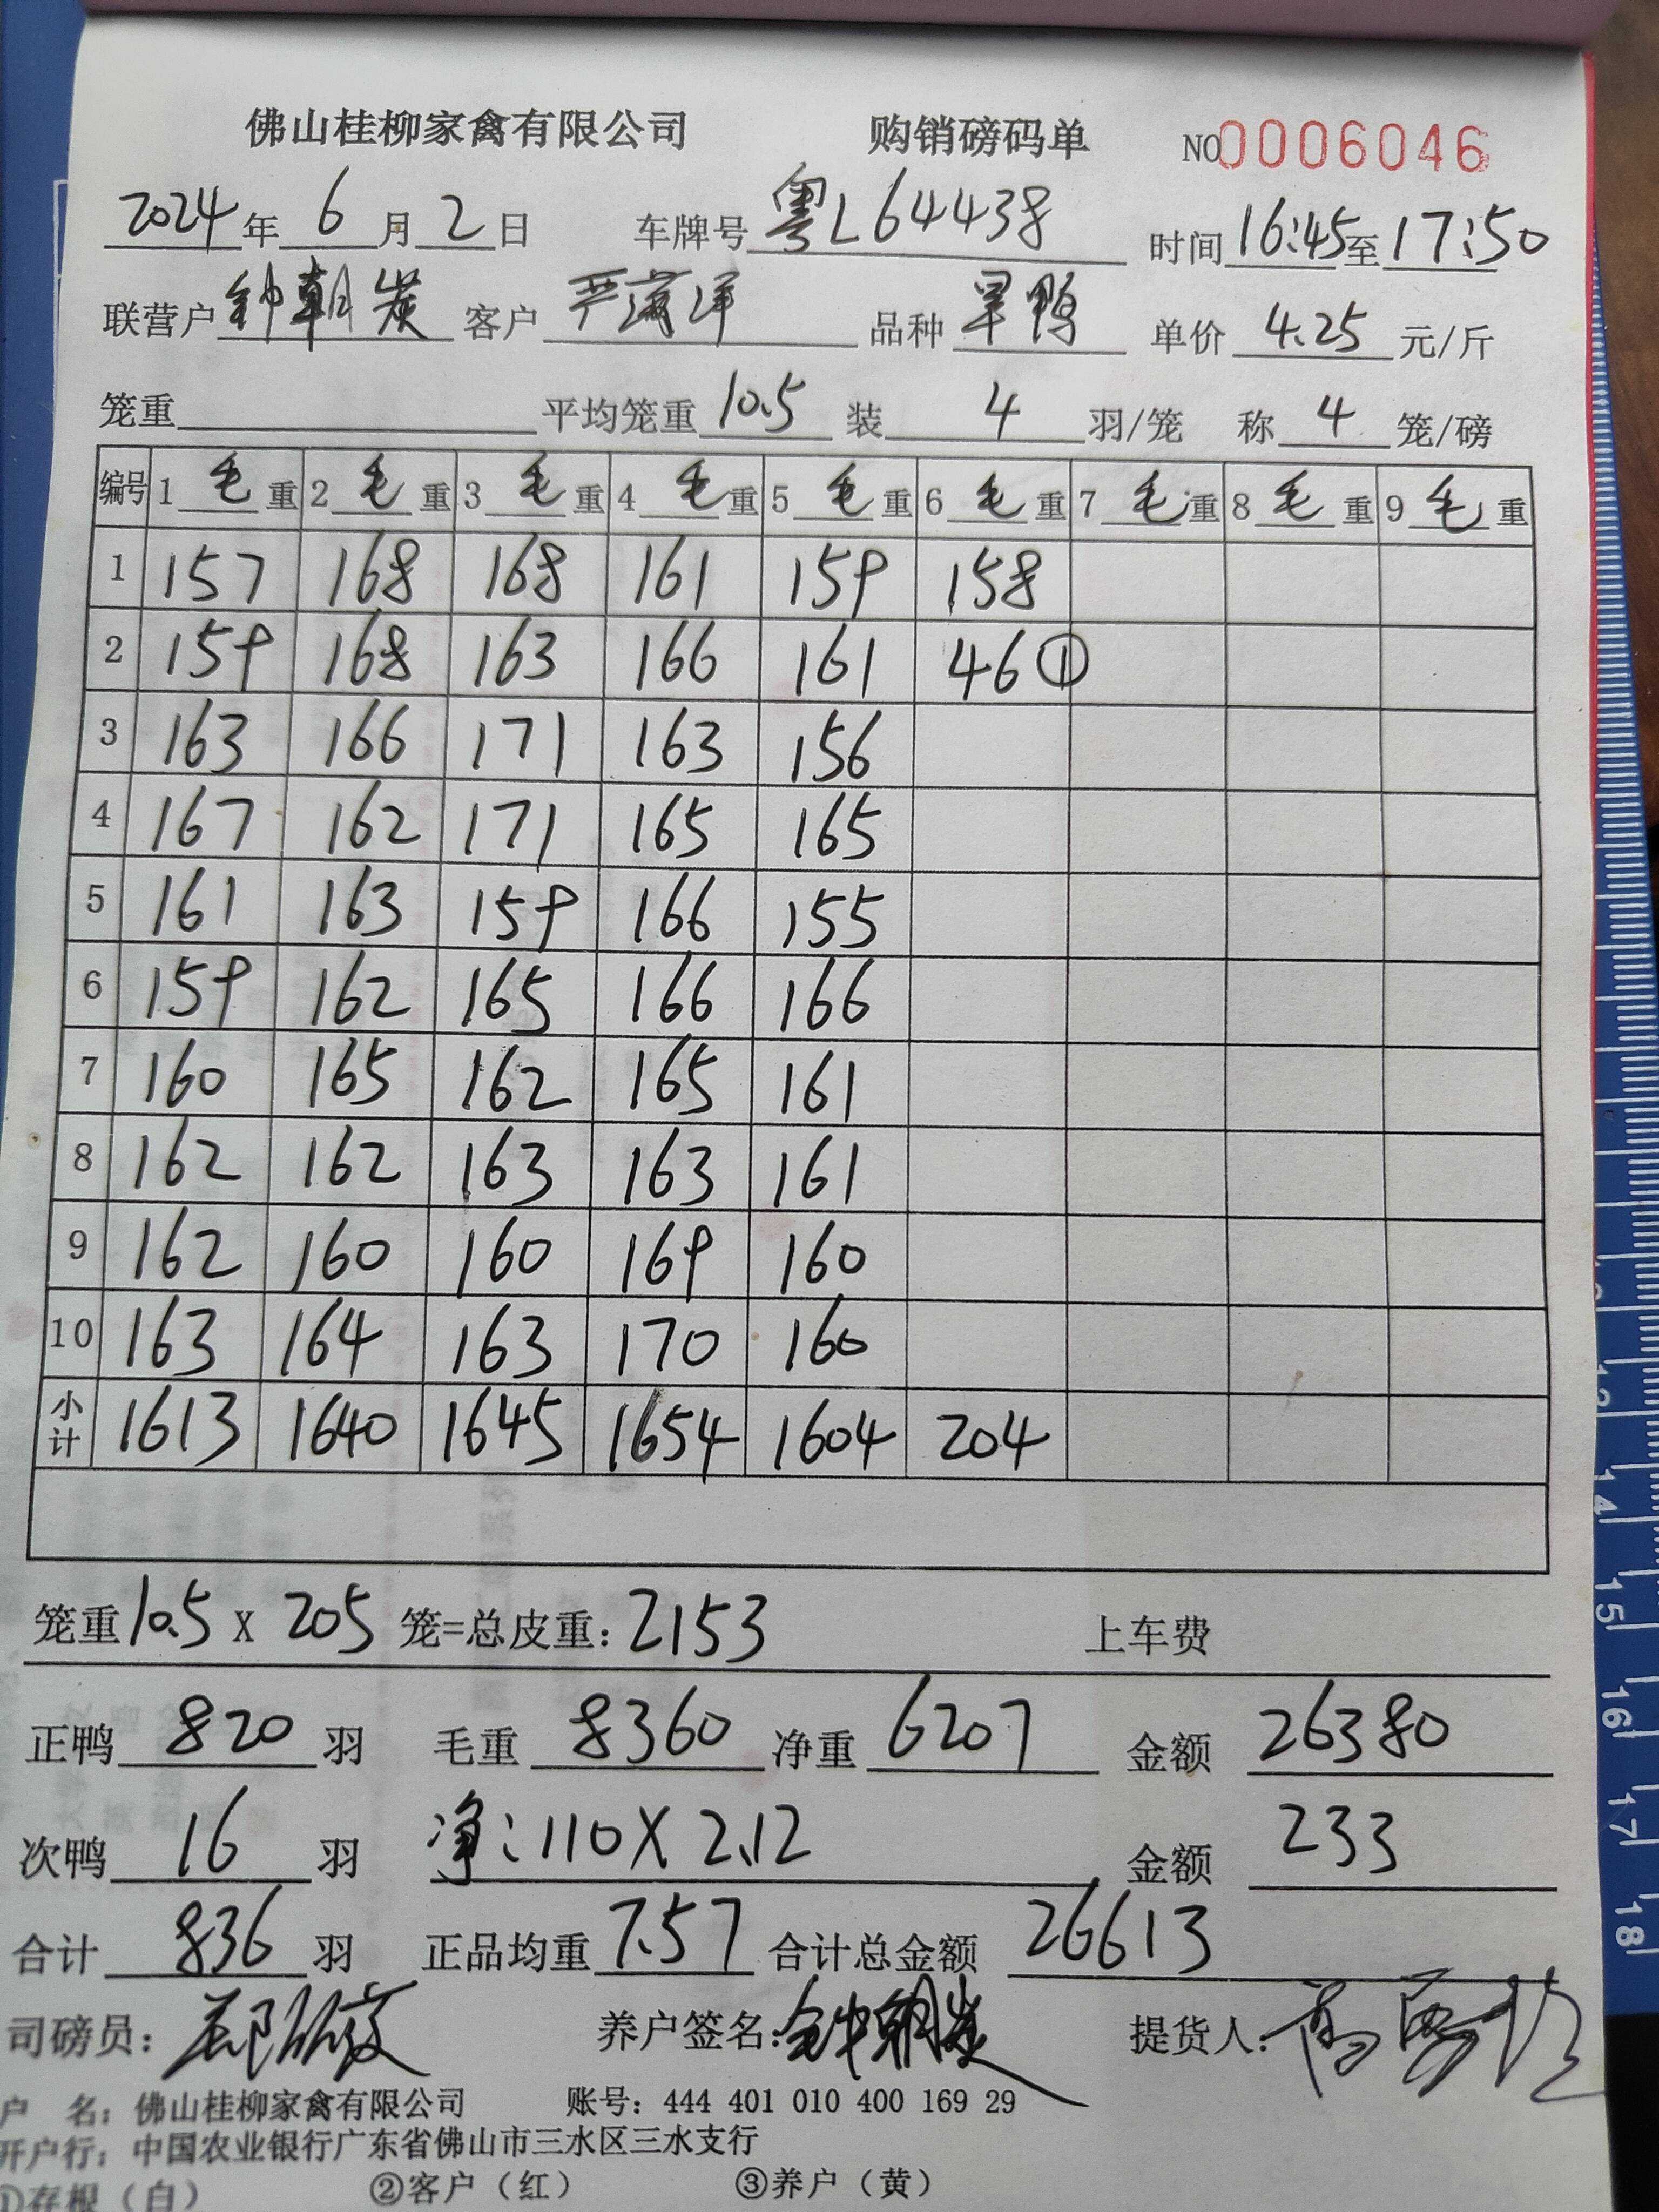 佛山桂柳家禽有限公司 购销磅码单 NO0006046
2024年6月2日 车牌号粤L64438 时间16:45至17:50
联营户钟朝炭 客户 品种旱鸭 单价4.25元/斤
笼重 平均笼重10.5 装4羽/笼 称4笼/磅
编号 1毛重 2毛重 3毛重 4毛重 5毛重 6毛重 7毛重 8毛重 9毛重
1 157 168 168 161 159 158
2 159 168 163 166 161 46①
3 163 166 171 163 156
4 167 162 171 165 165
5 161 163 159 166 155
6 159 162 165 166 166
7 160 165 162 165 161
8 162 162 163 163 161
9 162 160 160 169 160
10 163 164 163 170 160
小计 1613 1640 1645 1654 1604 204
笼重10.5X205笼=总皮重：2153 上车费
正鸭820羽 毛重8360 净重6207 金额26380
次鸭16羽 净：110X2.12 金额233
合计836羽 正品均重7.57 合计总金额26613
司磅员： 养户签名： 提货人：
户 名：佛山桂柳家禽有限公司 账号：444 401 010 400 169 29
开户行：中国农业银行广东省佛山市三水区三水支行
①存根（白） ②客户（红） ③养户（黄）